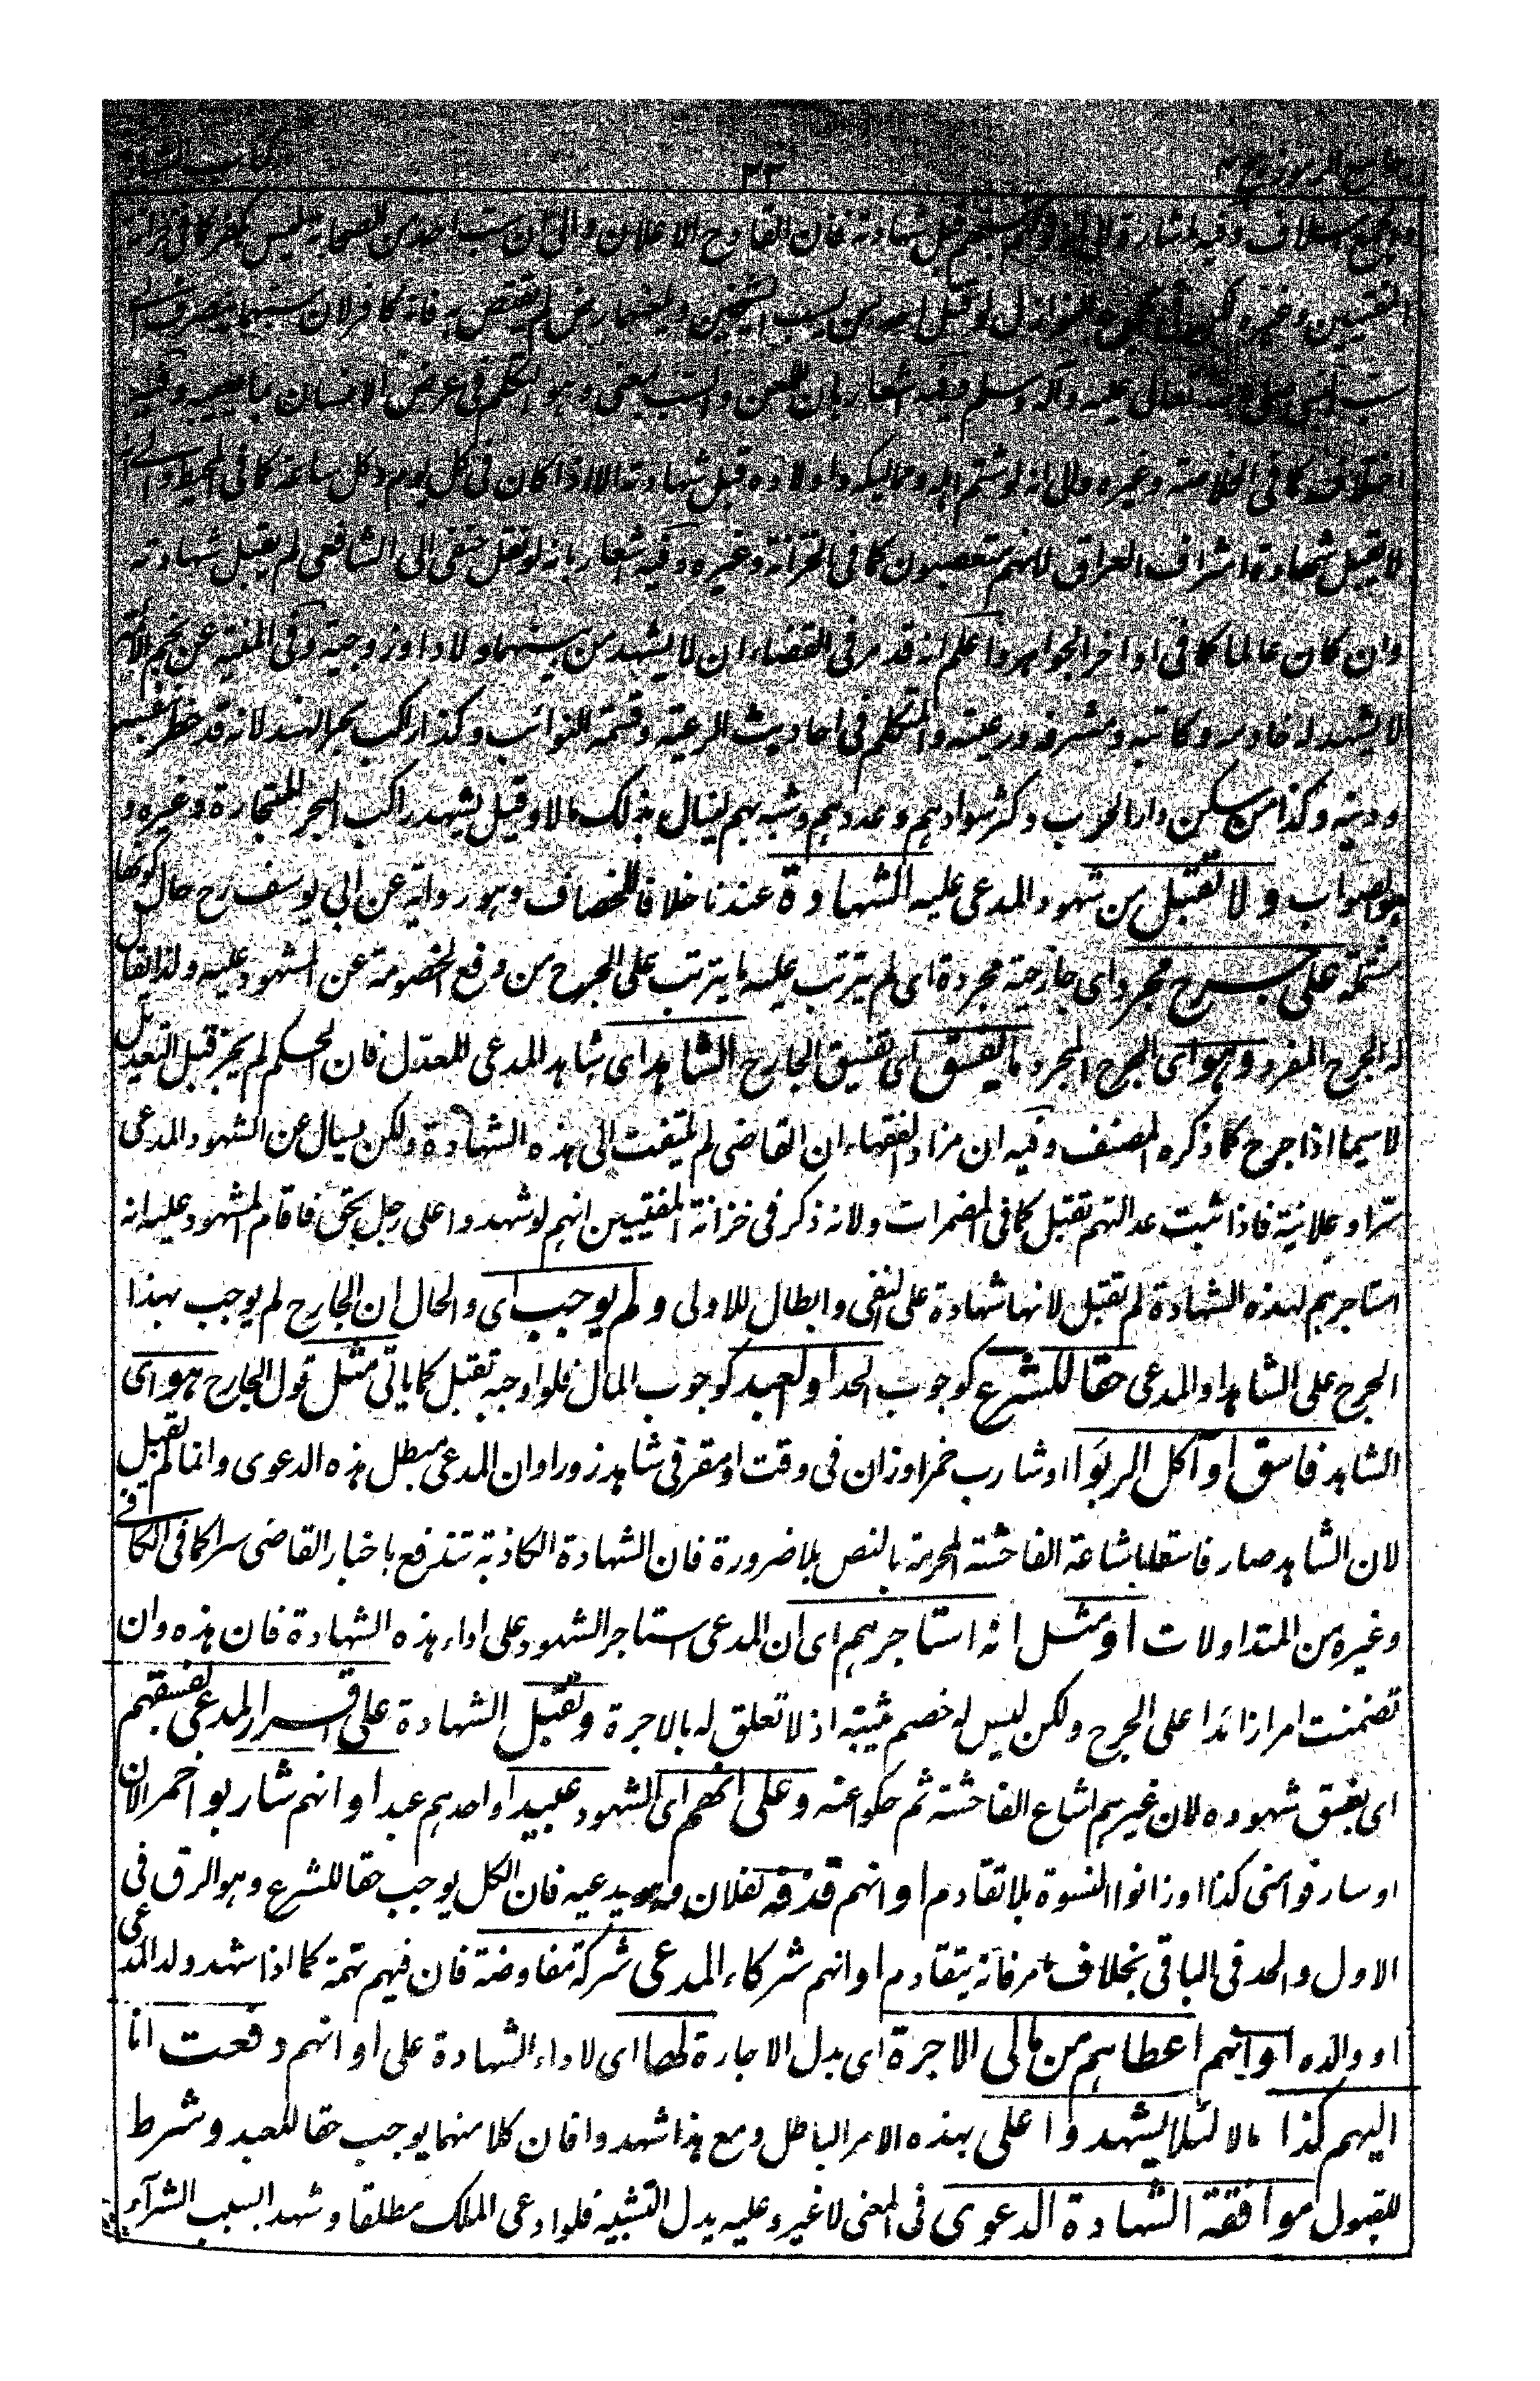 جامع الرموز ج ٣ ٣٣ كتاب الشهادة
شهادته فان القادح الاعلان والى ان سب احد من الصحابة ليس بكفر كما في خزانة
المفتيين وغيره لو قيل انه من يسب الشيخين ويلعنهما رض لم يقتص به فانه كافر لان سبهما ينصرف الى
سب النبي صلى الله تعالى عليه وآله وسلم ففيه اشعار بان اللعن والسب بمعنى وهو التكلم في عرض الانسان بما يعيبه وفيه
اختلاف كما في الخلاصة وغيره والى انه لو شتم اهله ومماليكه واولاده قبل شهادته الا اذا كان في كل يوم وكل ساعة كما في المحيط والى انه
لا يقبل شهادة اشراف العراق لانهم متعصبون كما في الخزانة وغيره وفيه اشعار بانه لو نقل حنفى الى الشافعى لم يقبل شهادته
وان كان عالما كما في اواخر الجواهر واعلم انه قد مر فى القضاء ان لا يشهد من بينهما ولاد او زوجية وفى المنية عن نجم الائمة
لا يشهد له خادمه وكاتبه ومشرفه ورعيته والمتكلم فى احاديث الرعية وقسمة النوائب وكذا راكب بحر الهند لانه قد خاطر بنفسه
ودينه وكذا من سكن دار الحرب وكثر سوادهم وعددهم وشبه بهم لينال بذلك مالا وقيل يشهد راكب البحر للتجارة وغيره و
هو الصواب ولا تقبل من شهود المدعى عليه الشهادة عندنا خلافا للخصاف وهو رواية عن ابى يوسف رح حال كونها
مشتملة على جرح مجرد اى جارحة مجردة اى لم يترتب عليه ما يترتب على الجرح من دفع الخصومة عن المشهود عليه ولذا يقال
له الجرح المفرد وهو اى الجرح المجرد ما يفسق اى تفسيق الجارح الشاهد اى شاهد المدعى المعدل فان الحكم لم يجز قبل التعديل
لا سيما اذا جرح كما ذكره المصنف وفيه ان مراد الفقهاء ان القاضى لم يلتفت الى هذه الشهادة ولكن يسال عن الشهود المدعى
سرا وعلانية فاذا ثبت عدالتهم تقبل كما فى المضمرات ولانه ذكر فى خزانة المفتيين انهم لو شهدوا على رجل بحق فاقام المشهود عليه انه
استاجرهم لهذه الشهادة لم تقبل لانها شهادة على النفى وابطال للاولى ولم يوجب اى والحال ان الجارح لم يوجب بهذا
الجرح على الشاهد او المدعى حقا للشرع كوجوب الحد او لعبد كوجوب المال فلو اوجبه تقبل كما ياتى مثل قول الجارح هو اى
الشاهد فاسق او آكل الربوا او شارب خمر او زان فى وقت او مقر فى شاهد زور او ان المدعى مبطل هذه الدعوى وانما لم تقبل
لان الشاهد صار فاسقا باشاعة الفاحشة المحرمة بالنص بلا ضرورة فان الشهادة الكاذبة تندفع باخبار القاضى سرا كما فى الكافى
وغيره من المتداولات او مثل انه استاجرهم اى ان المدعى استاجر الشهود على اداء هذه الشهادة فان هذه وان
تضمنت امرا زائدا على الجرح ولكن ليس له خصم يثبته اذ لا تعلق له بالاجرة وتقبل الشهادة على اقرار المدعى بفسقهم
اى بفسق شهوده لان غيرهم اشاع الفاحشة ثم حكوا عنه وعلى انهم اى الشهود عبيد او احدهم عبد او انهم شاربو خمر الان
او سارقوا منى كذا او زانوا النسوة بلا تقادم او انهم قذفة لفلان وهو يدعيه فان الكل يوجب حقا للشرع وهو الرق فى
الاول والحد فى الباقى بخلاف ما مر فانه يتقادم او انهم شركاء المدعى شركة مفاوضة فان فيهم تهمة كما اذا شهد ولد المدعى
او والده او انهم اعطاهم من مالى الاجرة اى بدل الاجارة لها اى لاداء الشهادة على او انهم دفعت انا
اليهم كذا مالا لئلا يشهدوا على بهذه الامر الباطل ومع هذا شهدوا فان كلا منهما يوجب حقا للعبد وشرط
للقبول موافقة الشهادة الدعوى فى المعنى لا غير وعليه يدل التشبيه فلو ادعى الملك مطلقا وشهد السبب الشرآء